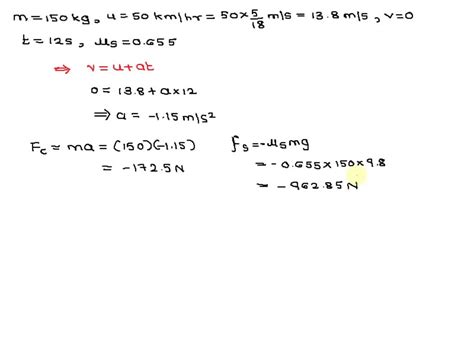 m=150kg, u=50 km/hr=50×5/18 m/s=13.8 m/s, v=0
t=12s, μs=0.655
⇒ v=u+at
0=13.8+a×12
⇒ a=-1.15m/s²
Fc=ma=(150)(-1.15)
=-172.5N
fs=-μsmg
=-0.655×150×9.8
=-962.85N